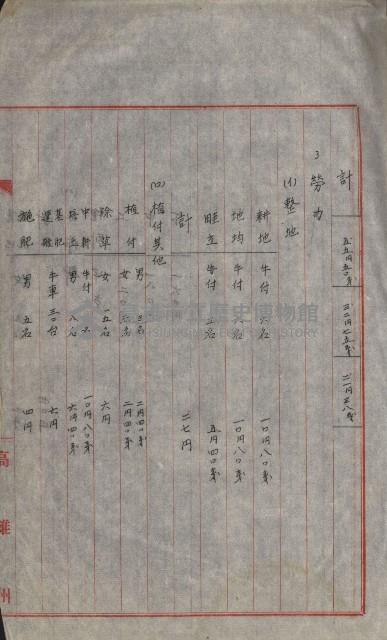 計 五五円五〇 三二円七五 二一円三八
3 勞力
(イ) 整地
耕地 牛付 六名 一〇円八〇錢
地均 牛付 六名 一〇円八〇錢
畦立 牛付 三名 五円四〇錢
計 二七円
(ロ) 植付其他
植付 男 三名 二円四〇錢
女 六名 二円四〇錢
除草 女 一五名 六円
中耕 牛付 六 一〇円八〇錢
培土 男 八名 六円四〇錢
基肥運搬 牛車 三〇台 六円
施肥 男 五名 四円
高雄州